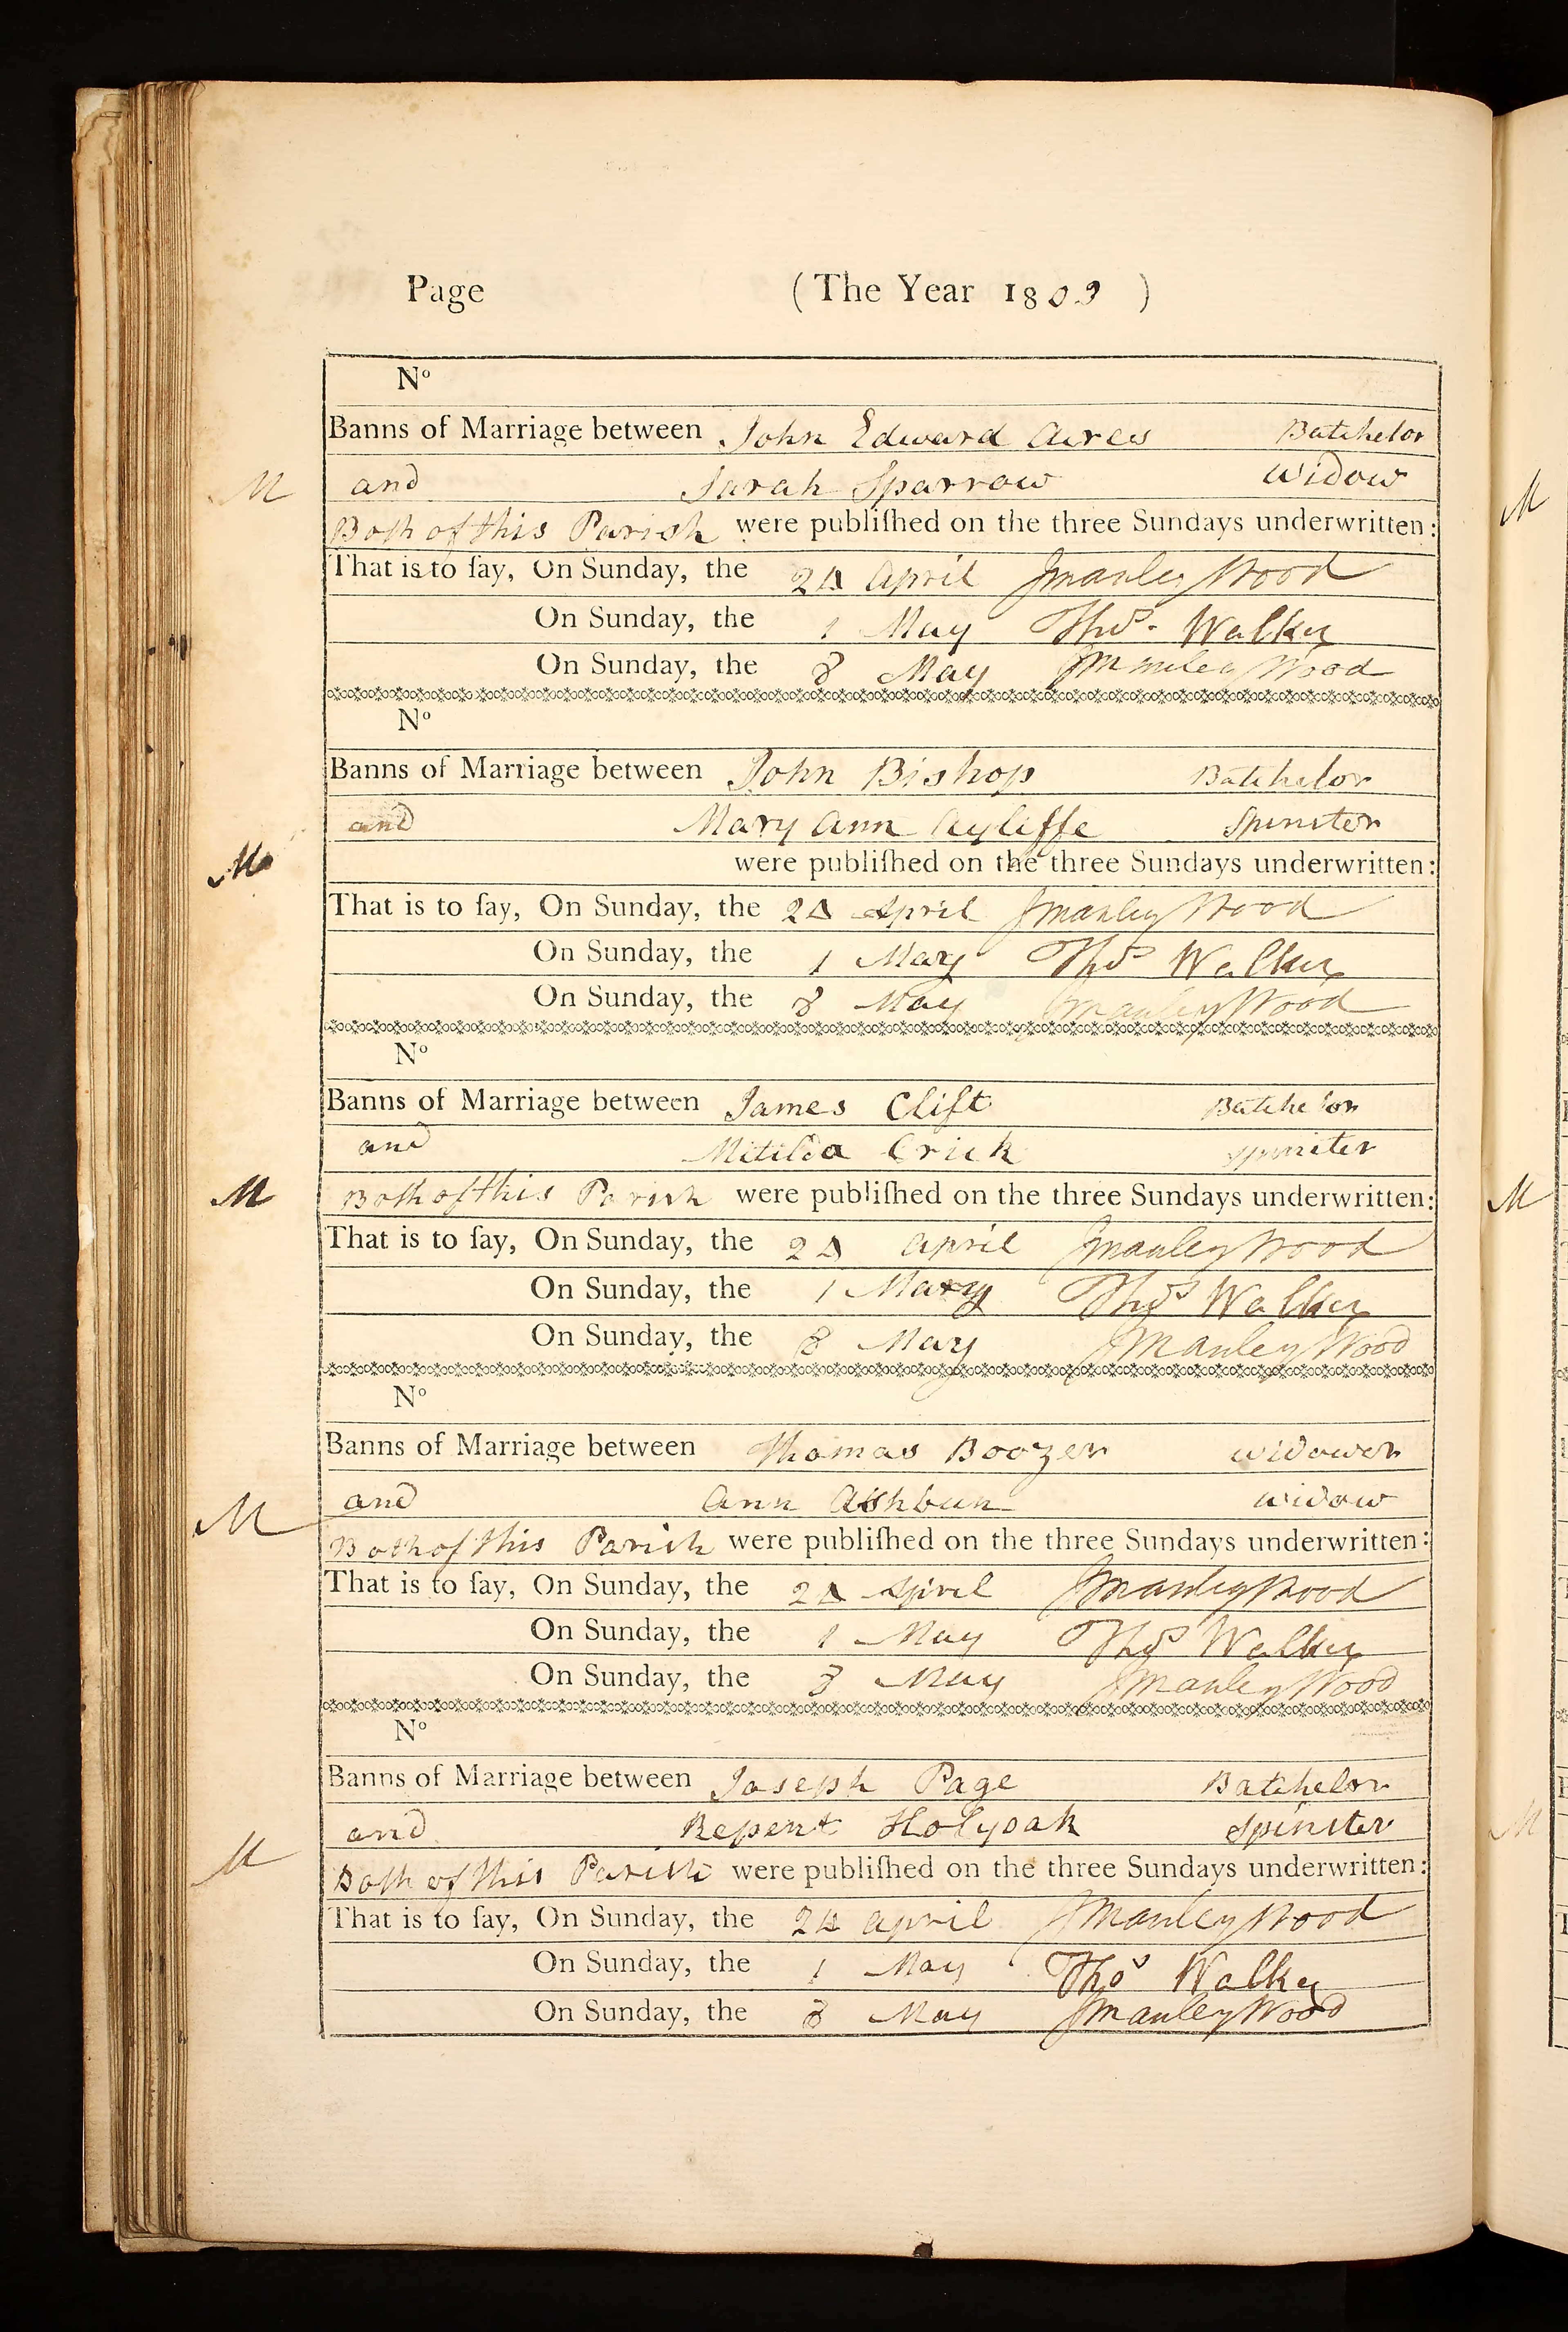 Page (The Year 1803 )
Nº
Banns of Marriage between John Edward Aires Batchelor
M and Sarah Sparrow Widow
Both of this Parish were publiſhed on the three Sundays underwritten:
That is to ſay, On Sunday, the 24 April JManley Wood
On Sunday, the 1 May Thoˢ. Walker
On Sunday, the 8 May JManley Wood
Nº
Banns of Marriage between John Bishop Batchelor
and Mary Ann Ayliffe Spinster
M were publiſhed on the three Sundays underwritten:
That is to ſay, On Sunday, the 24 April JManley Wood
On Sunday, the 1 May Thoˢ Walker
On Sunday, the 8 May JManley Wood
Nº
Banns of Marriage between James Clift Batchelor
and Mitilda Crick spinster
M Both of this Parish were publiſhed on the three Sundays underwritten:
That is to ſay, On Sunday, the 24 April JManley Wood
On Sunday, the 1 May Thoˢ Walker
On Sunday, the 8 May JManley Wood
Nº
Banns of Marriage between Thomas Boozer widower
and Ann Ashbun widow
M Both of this Parish were publiſhed on the three Sundays underwritten:
That is to ſay, On Sunday, the 24 April JManley Wood
On Sunday, the 1 May Thoˢ Walker
On Sunday, the 8 May JManley Wood
Nº
Banns of Marriage between Joseph Page Batchelor
and Repent Holyoak Spinster
M Both of this Parish were publiſhed on the three Sundays underwritten:
That is to ſay, On Sunday, the 24 April JManley Wood
On Sunday, the 1 May Thoˢ Walker
On Sunday, the 8 May JManley Wood
M
M
M